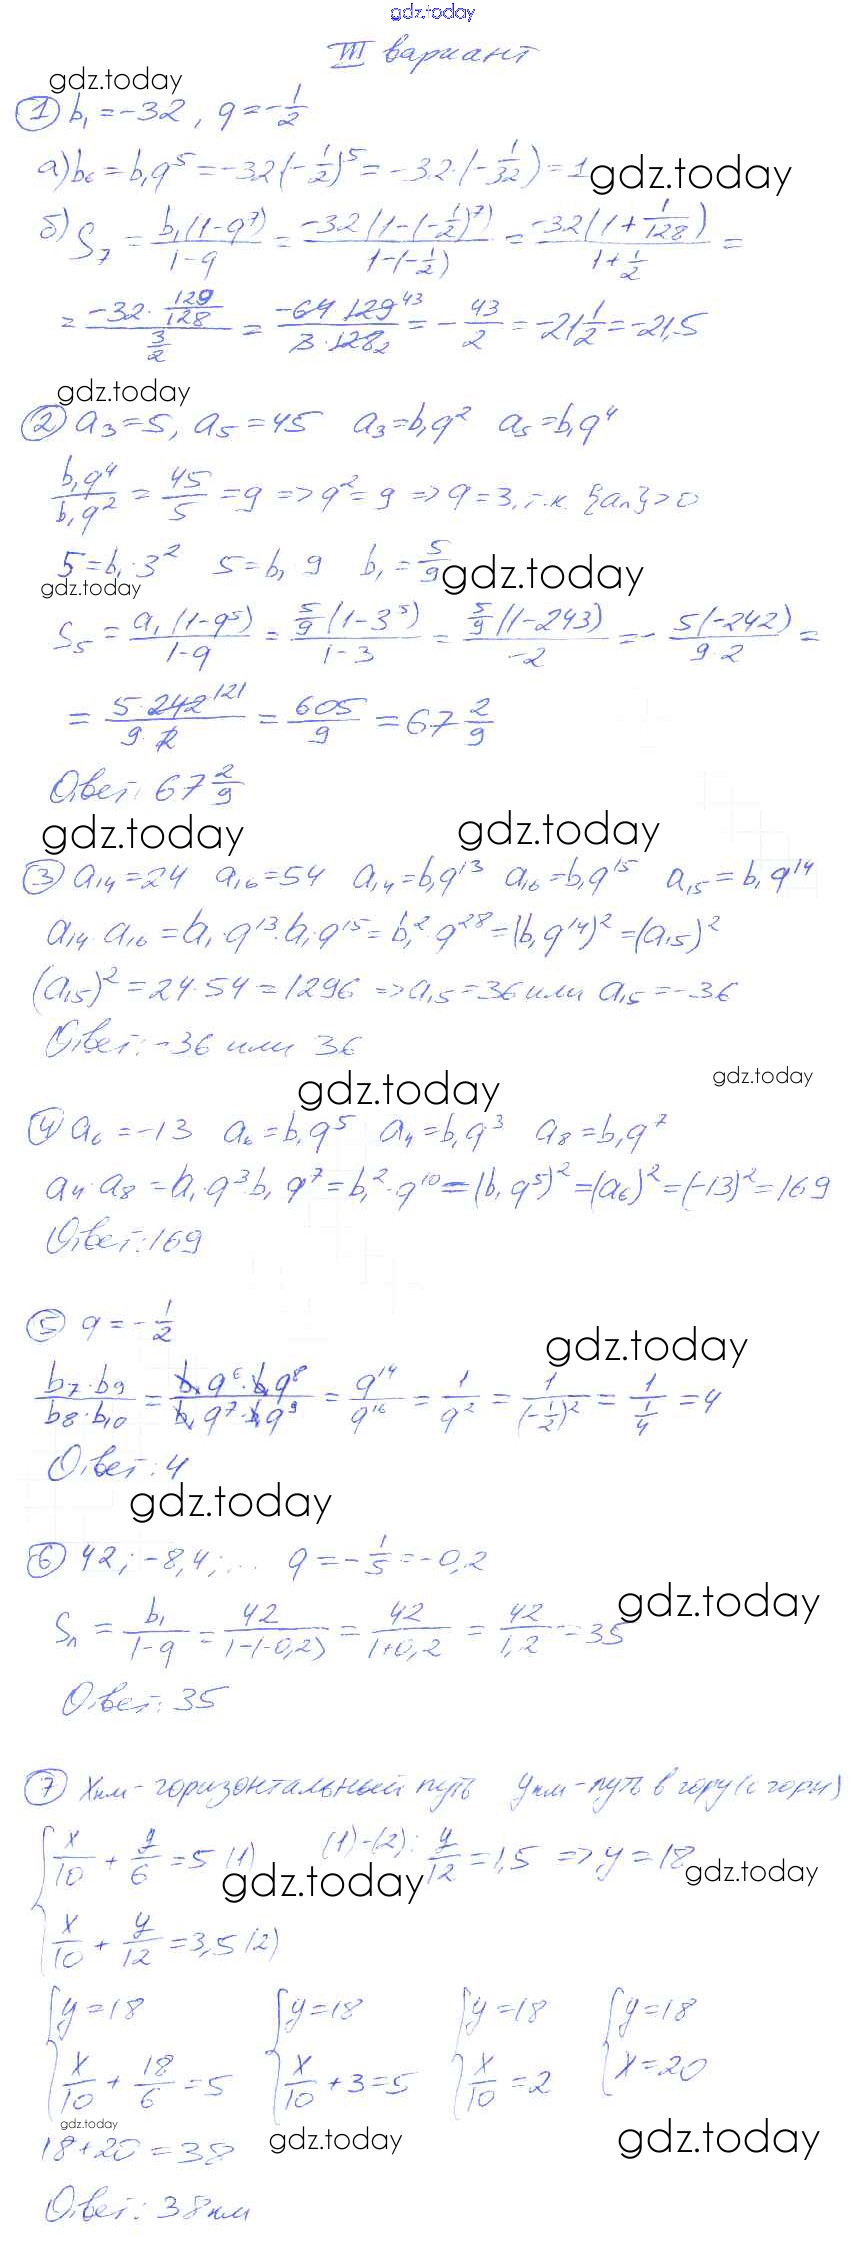 gdz.today
III вариант
gdz.today
① b₁ = -32, q = -1/2
а) b₆ = b₁q⁵ = -32(-1/2)⁵ = -32·(-1/32) = 1
gdz.today
б) S₇ = b₁(1-q⁷)/(1-q) = -32(1-(-1/2)⁷)/(1-(-1/2)) = -32(1+1/128)/(1+1/2) =
= (-32·129/128)/(3/2) = -64 129⁴³/(3·128₂) = -43/2 = -21 1/2 = -21,5
gdz.today
② a₃=5, a₅=45 a₃=b₁q² a₅=b₁q⁴
b₁q⁴/b₁q² = 45/5 = 9 => q² = 9 => q = 3, т.к. {an}>0
5 = b₁·3² 5 = b₁ 9 b₁ = 5/9
gdz.today
gdz.today
S₅ = a₁(1-q⁵)/(1-q) = 5/9(1-3⁵)/(1-3) = 5/9(1-243)/-2 = - 5(-242)/(9·2) =
= 5·242¹²¹/(9·2) = 605/9 = 67 2/9
Ответ: 67 2/9
gdz.today
gdz.today
③ a₁₄=24 a₁₆=54 a₁₄=b₁q¹³ a₁₆=b₁q¹⁵ a₁₅=b₁q¹⁴
a₁₄·a₁₆ = a₁·q¹³·a₁·q¹⁵ = b₁²·q²⁸ = (b₁q¹⁴)² = (a₁₅)²
(a₁₅)² = 24·54 = 1296 => a₁₅ = 36 или a₁₅ = -36
Ответ: -36 или 36
gdz.today
gdz.today
④ a₆ = -13 a₆ = b₁q⁵ a₄ = b₁q³ a₈ = b₁q⁷
a₄·a₈ = a₁·q³b₁q⁷ = b₁²·q¹⁰ = (b₁q⁵)² = (a₆)² = (-13)² = 169
Ответ: 169
⑤ q = -1/2
gdz.today
b₇·b₉/b₈·b₁₀ = b₁q⁶·b₁q⁸/b₁q⁷·b₁q⁹ = q¹⁴/q¹⁶ = 1/q² = 1/(-1/2)² = 1/(1/4) = 4
Ответ: 4
gdz.today
⑥ 42; -8,4; ... q = -1/5 = -0,2
gdz.today
Sₙ = b₁/(1-q) = 42/(1-(-0,2)) = 42/(1+0,2) = 42/1,2 = 35
Ответ: 35
⑦ Xкм - горизонтальный путь Yкм - путь в гору (с горы)
{ x/10 + y/6 = 5 (1) (1)-(2): y/12 = 1,5 => y = 18
gdz.today
gdz.today
x/10 + y/12 = 3,5 (2)
{ y=18 { y=18 { y=18 { y=18
x/10 + 18/6 = 5 x/10 + 3 = 5 x/10 = 2 x=20
gdz.today
18+20 = 38
gdz.today
gdz.today
Ответ: 38км